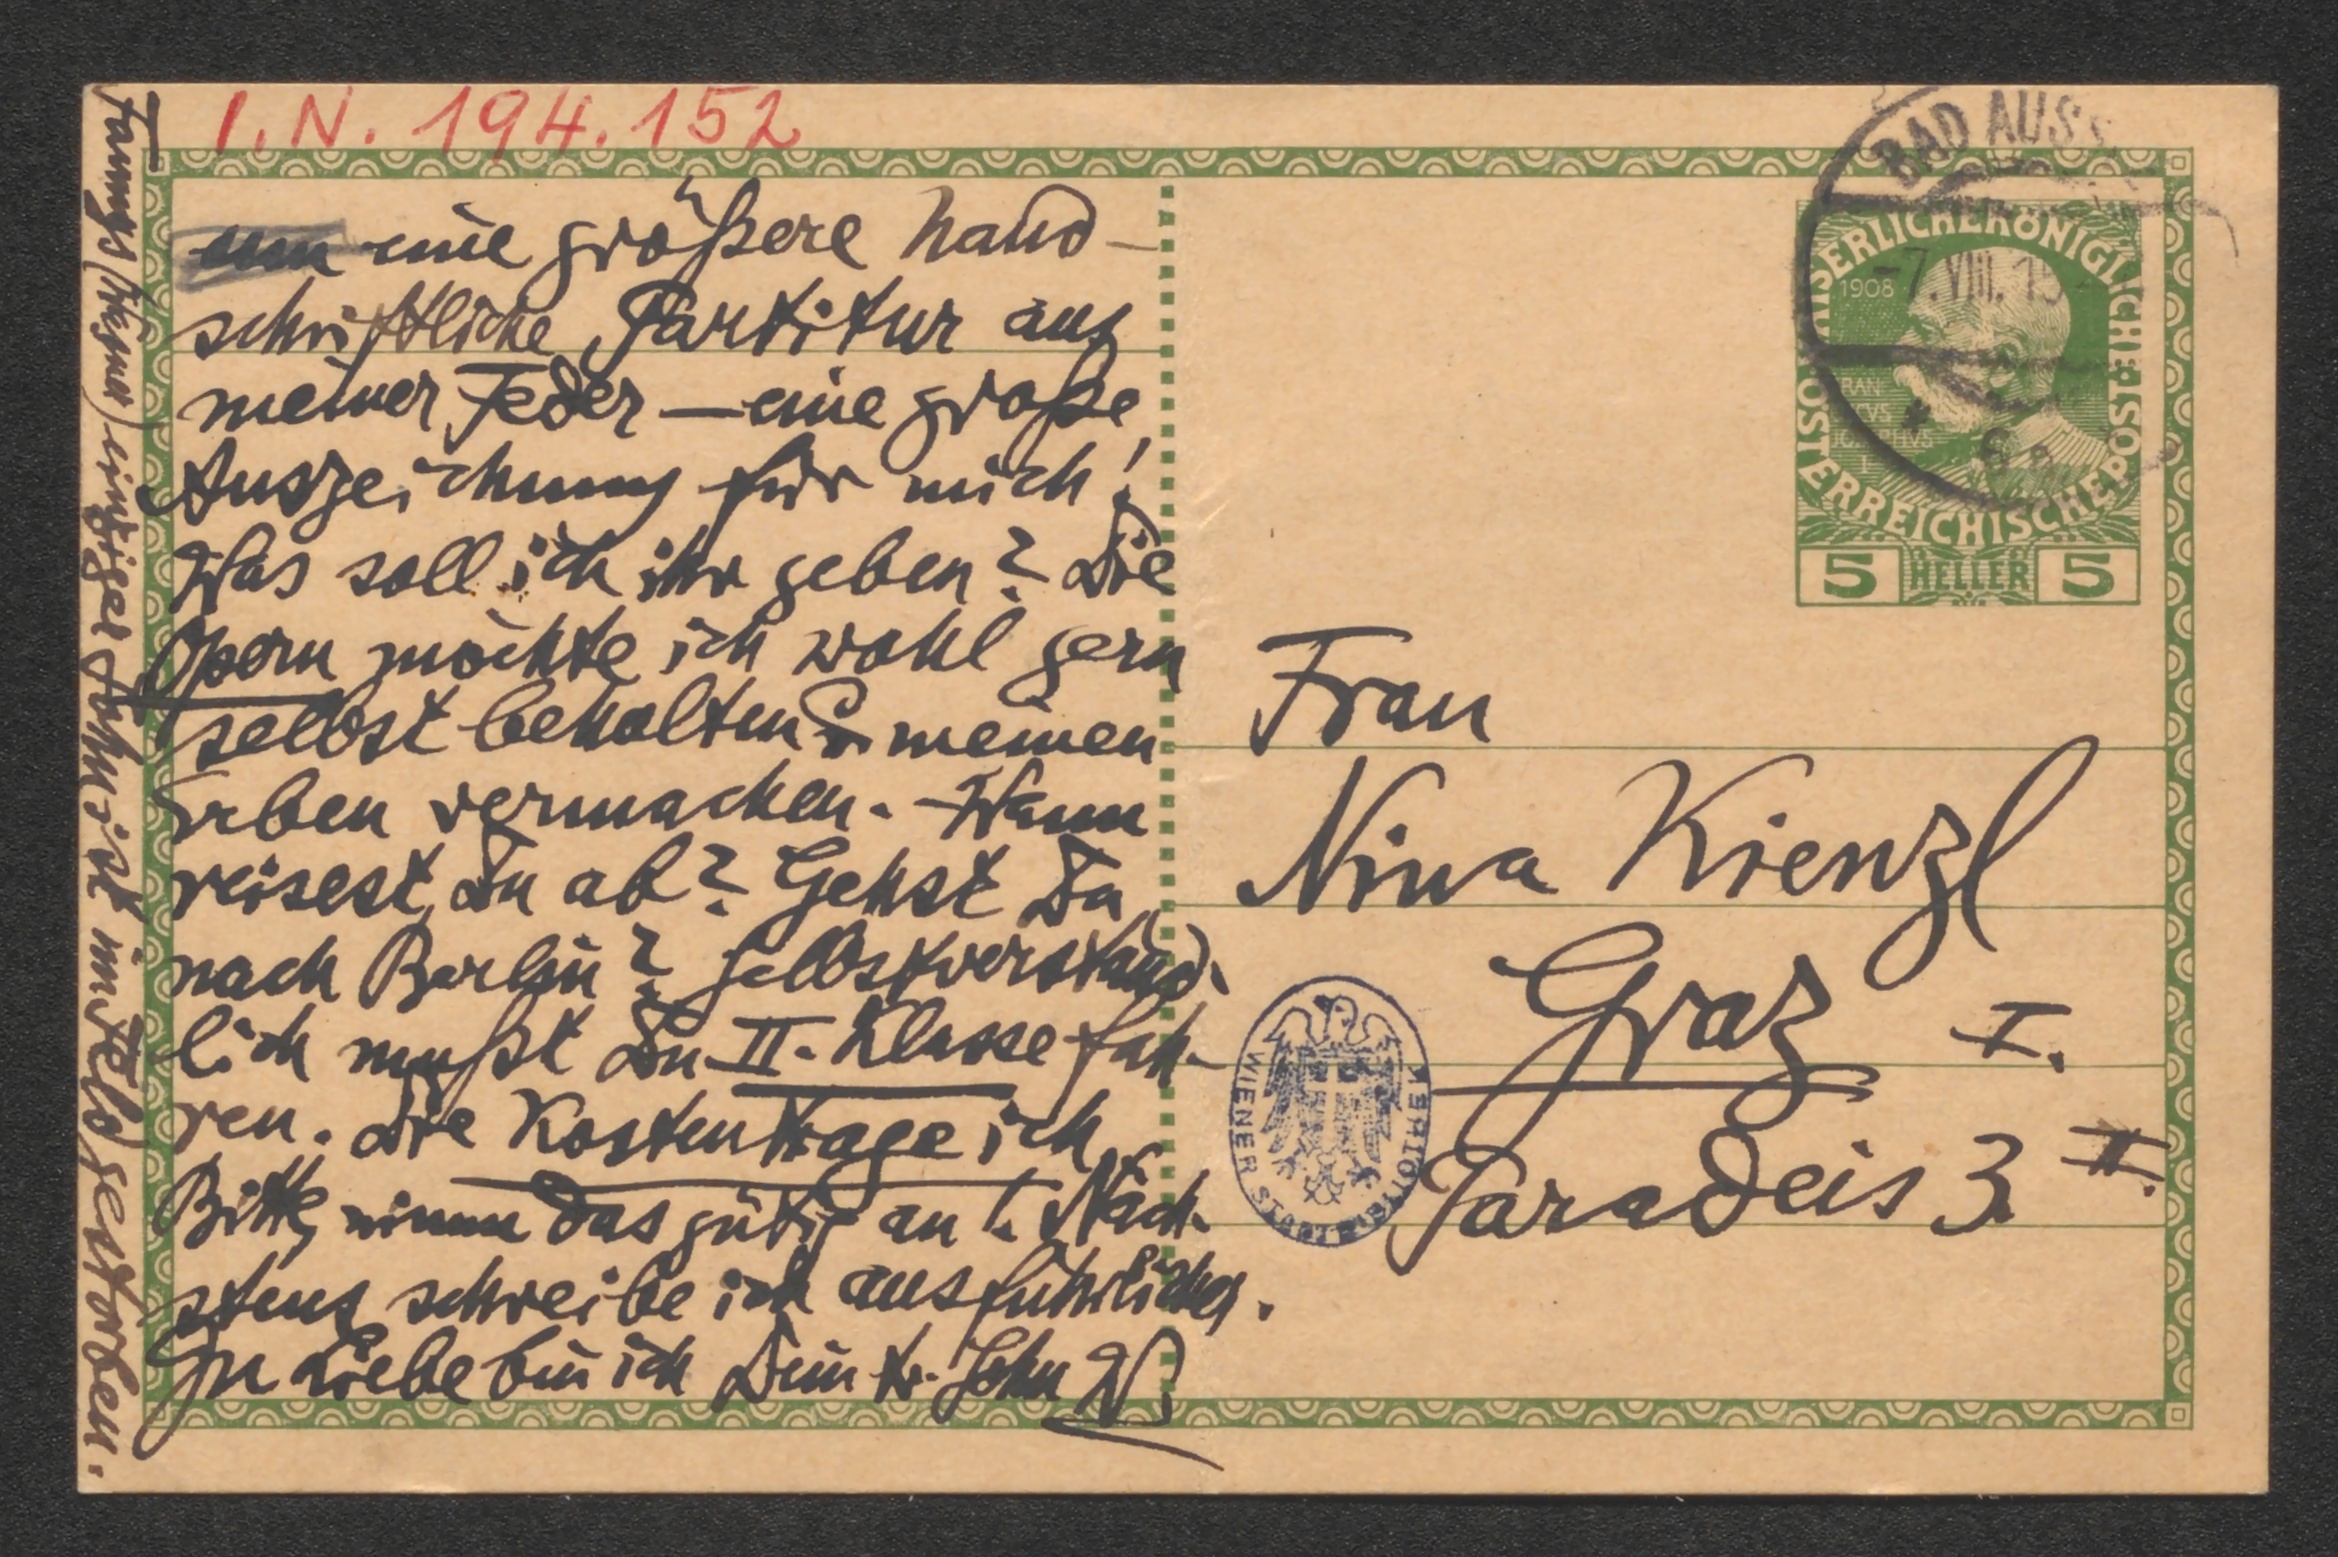 I.N. 194.152
um eine größere hand-
schriftliche Partitur aus
meiner Feder — eine große
Auszeichnung für mich!
Was soll ich ihr geben? Die
Opern möchte ich wohl gern
selbst behalten & meinen
Erben vermachen. Wann
reisest Du ab? Gehst Du
nach Berlin? Selbstverständ-
lich mußt Du II. Klasse fah-
ren. Die Kosten trage ich
Bitte, nimm das gütig an! Näch-
stens schreibe ich ausführlicher.
In Liebe bin ich Dein tr. John W
einziger Sohn ist im Feld gestorben.
BAD AUSS
-7.VIII.15
KAISERLICHE KÖNIGLICHE
ÖSTERREICHISCHE POST
1908
5 HELLER 5
Frau
Nina Kienzl
Graz I.
Paradeis 3. II.
WIENER STADTBIBLIOTHEK